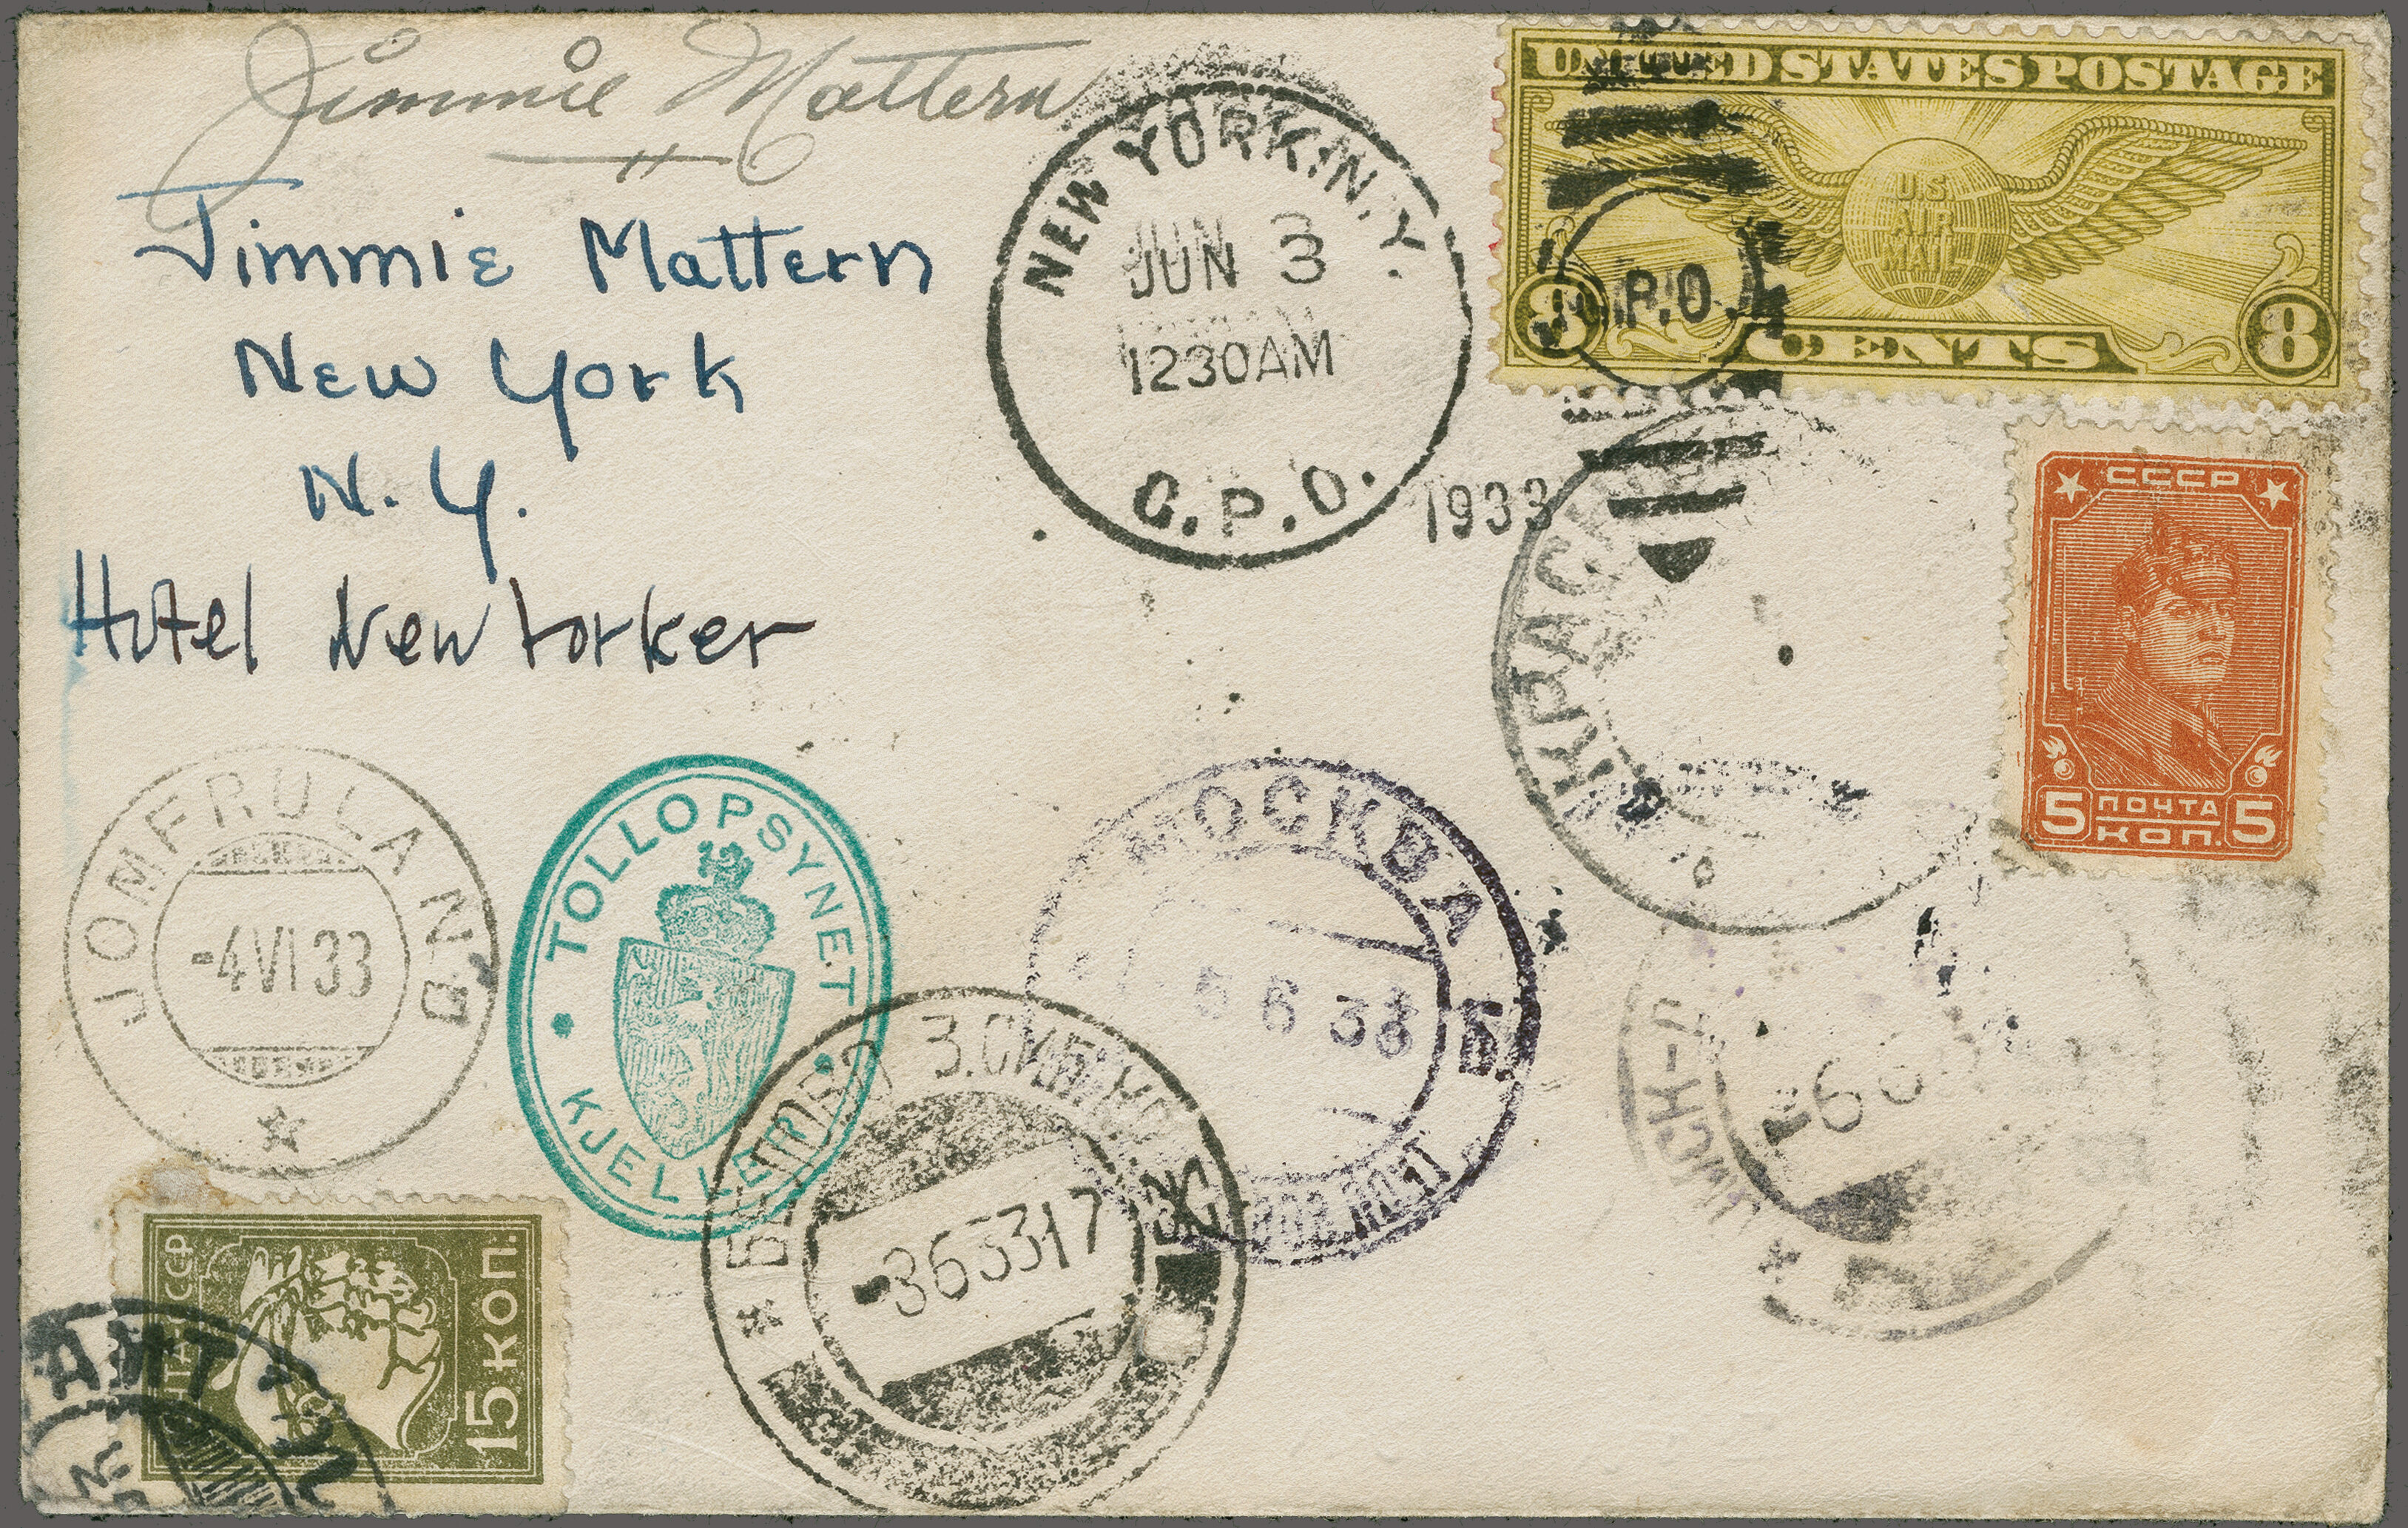 Jimmie Mattern
Jimmie Mattern
New York
N.Y.
Hotel New Yorker
NEW YORK, N.Y.
JUN 3
1230AM
G.P.O.
1933
UNITED STATES POSTAGE
U.S.
AIR
MAIL
8 CENTS 8
P.O.
СССР
5 ПОЧТА 5
КОП.
JOMFRULAND
-4 VI 33
TOLLOPSYNET
KJELLER
МОСКВА
5 6 33
З.СИБ.
-3 6 33 17
15 КОП.